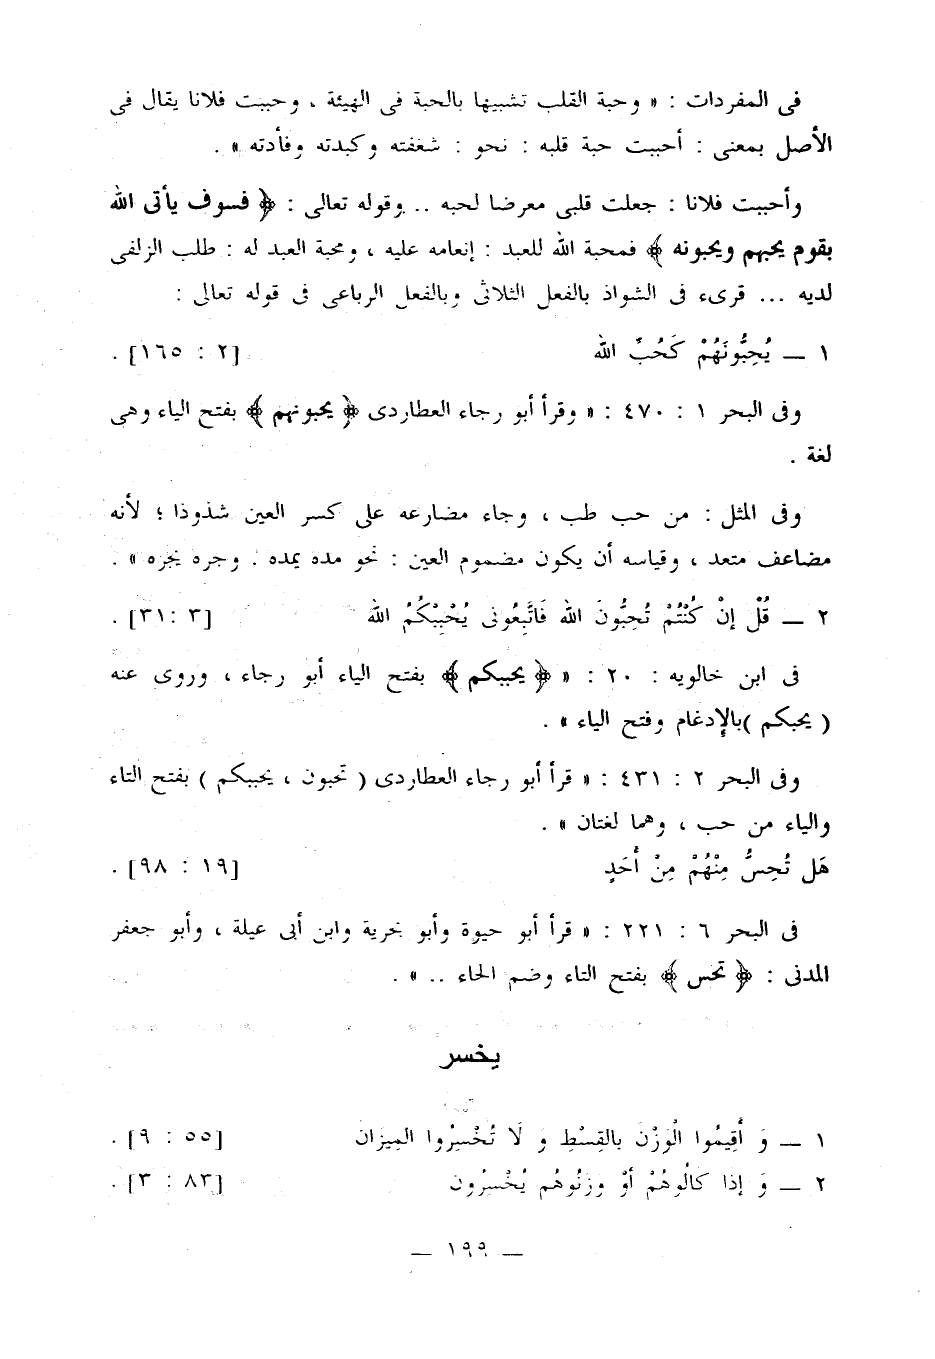 فى المفردات : « وحبة القلب تشبيها بالحبة فى الهيئة ، وحببت فلانا يقال فى
الأصل بمعنى : أحببت حبة قلبه : نحو : شغفته وكبدته وفأدته » .
وأحببت فلانا : جعلت قلبى معرضا لحبه .. وقوله تعالى : ﴿ فسوف يأتى الله
بقوم يحبهم ويحبونه ﴾ فمحبة الله للعبد : إنعامه عليه ، ومحبة العبد له : طلب الزلفى
لديه ... قرىء فى الشواذ بالفعل الثلاثى وبالفعل الرباعى فى قوله تعالى :
١ — يُحِبُّونَهُمْ كَحُبِّ الله [٢ : ١٦٥] .
وفى البحر ١ : ٤٧٠ : « وقرأ أبو رجاء العطاردى ﴿ يحبونهم ﴾ بفتح الياء وهى
لغة .
وفى المثل : من حب طب ، وجاء مضارعه على كسر العين شذوذا ؛ لأنه
مضاعف متعد ، وقياسه أن يكون مضموم العين : نحو مده يمده . وجره يجره » .
٢ — قُلْ إنْ كُنْتُمْ تُحِبُّونَ الله فَاتَّبِعُونى يُحْبِبْكُمُ الله [٣ :٣١] .
فى ابن خالويه : ٢٠ : « ﴿ يحببكم ﴾ بفتح الياء أبو رجاء ، وروى عنه
( يحبكم )بالإدغام وفتح الياء » .
وفى البحر ٢ : ٤٣١ : « قرأ أبو رجاء العطاردى ( تحبون ، يحببكم ) بفتح التاء
والياء من حب ، وهما لغتان » .
هَل تُحِسُّ مِنْهُمْ مِنْ أَحَدٍ [١٩ : ٩٨] .
فى البحر ٦ : ٢٢١ : « قرأ أبو حيوة وأبو بحرية وابن أبى عبلة ، وأبو جعفر
المدنى : ﴿ تحس ﴾ بفتح التاء وضم الحاء .. » .
يخسر
١ — وَ أَقِيمُوا الْوَزْنَ بالقِسْطِ وَ لَا تُخْسِرُوا الميزان [٥٥ : ٩] .
٢ — وَ إذا كالُوهُمْ أوْ وزنُوهُم يُخْسِرُون [٨٣ : ٣] .
— ١٩٩ —